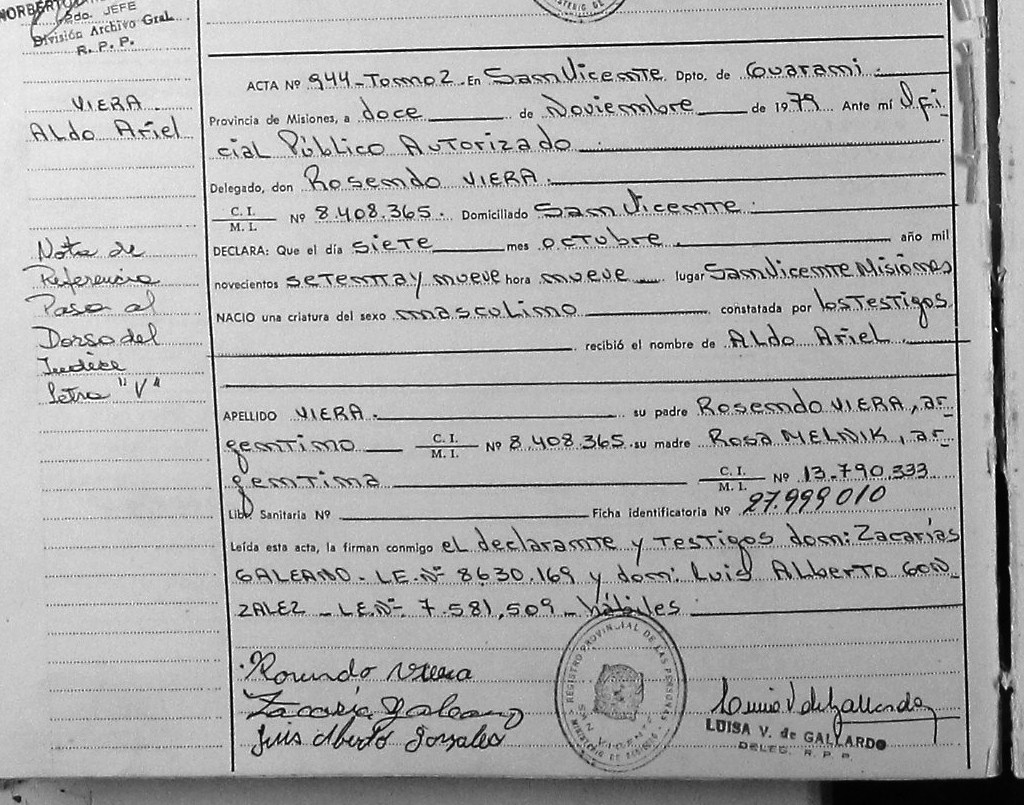 NORBERTO
2do. JEFE
División Archivo Gral.
R. P. P.
VIERA
Aldo Ariel
Nota de
Referencia
Pasa al
Dorso del
Indice
Letra "V"
ACTA Nº 944-Tomo 2. En San Vicente Dpto. de Guaraní.
Provincia de Misiones, a doce de Noviembre de 1979 Ante mí Ofi-
cial Público Autorizado
Delegado, don Rosendo VIERA.
C. I. / M. I. Nº 8.408.365. Domiciliado San Vicente.
DECLARA: Que el día siete mes octubre año mil
novecientos setenta y nueve hora nueve lugar San Vicente Misiones
NACIO una criatura del sexo masculino constatada por los testigos
recibió el nombre de Aldo Ariel.
APELLIDO VIERA. su padre Rosendo VIERA, ar-
gentino C. I. / M. I. Nº 8.408.365. su madre Rosa MELNIK, ar-
gentina C. I. / M. I. Nº 13.790.333
Lib. Sanitaria Nº Ficha identificatoria Nº 27.999010
Leída esta acta, la firman conmigo el declarante y testigos don: Zacarías
GALEANO. L.E.Nº 8630.169 y don: Luis Alberto GON-
ZALEZ - L.E.Nº 7.581,509 - hábiles.
Rosendo Viera
Zacaría Galeano
Luis Alberto Gonzales
REGISTRO PROVINCIAL DE LAS PERSONAS
SAN VICENTE
MINISTERIO DE GOBIERNO
Luisa V de Gallardo
LUISA V. de GALLARDO
DELEG. R. P. P.